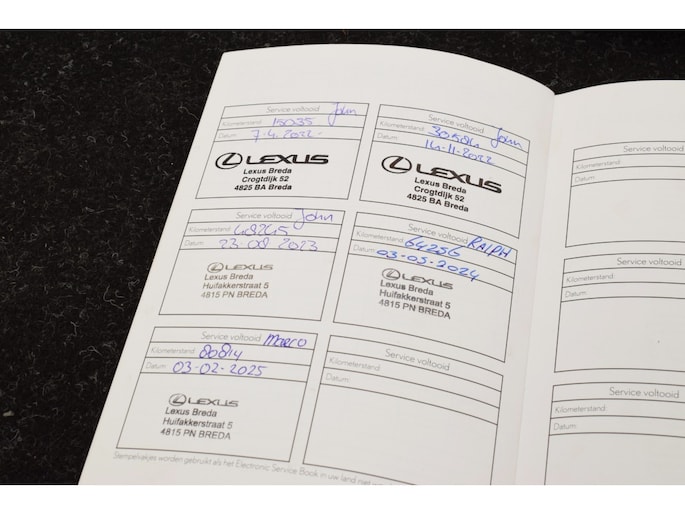 Service voltooid John
Kilometerstand: 15035
Datum: 7-4-2022-
LEXUS
Lexus Breda
Crogtdijk 52
4825 BA Breda
Service voltooid John
Kilometerstand: 30584
Datum: 14-11-2022
LEXUS
Lexus Breda
Crogtdijk 52
4825 BA Breda
Service voltooid John
Kilometerstand: 48245
Datum: 23-08 2023
LEXUS
Lexus Breda
Huifakkerstraat 5
4815 PN BREDA
Service voltooid RALPH
Kilometerstand: 64256
Datum: 03-05-2024
LEXUS
Lexus Breda
Huifakkerstraat 5
4815 PN BREDA
Service voltooid Marco
Kilometerstand: 80814
Datum: 03-02-2025
LEXUS
Lexus Breda
Huifakkerstraat 5
4815 PN BREDA
Service voltooid
Kilometerstand:
Datum:
Stempelvakjes worden gebruikt als het Electronic Service Book in uw land niet
Service voltooid
Kilometerstand:
Datum:
Service voltooid
Kilometerstand:
Datum:
Service voltooid
Kilometerstand:
Datum: